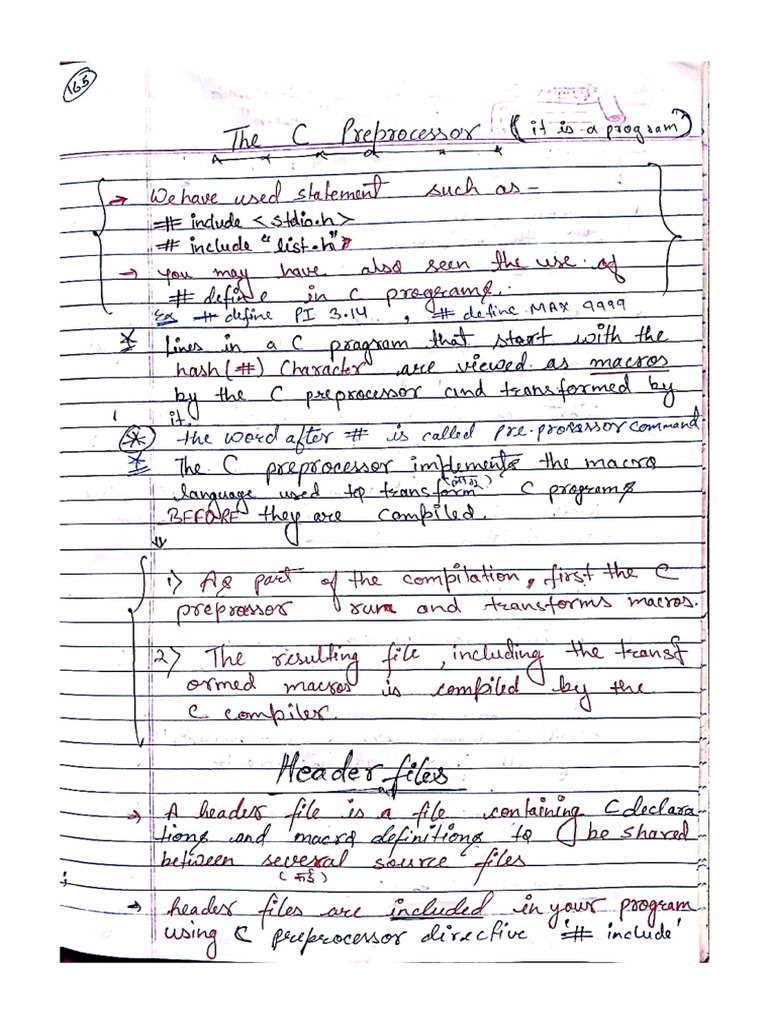 165
The C Preprocessor (it is a program)
→ We have used statement such as –
# include <stdio.h>
# include "list.h"
→ you may have also seen the use of
# define in C programs.
Ex # define PI 3.14 , # define MAX 9999
* Lines in a C program that start with the
hash (#) character are viewed as macros
by the C preprocessor and transformed by
it.
* the word after # is called pre-processor command
* The C preprocessor implements the macro
language used to transform C programs
BEFORE they are compiled.
1) As part of the compilation, first the C
preprossor runs and transforms macros.
2) The resulting file, including the transf
ormed macros is compiled by the
C compiler.
Header files
→ A header file is a file containing C declara
tions and macro definitions to be shared
between several source files
(कई)
→ header files are included in your program
using C preprocessor directive '# include'